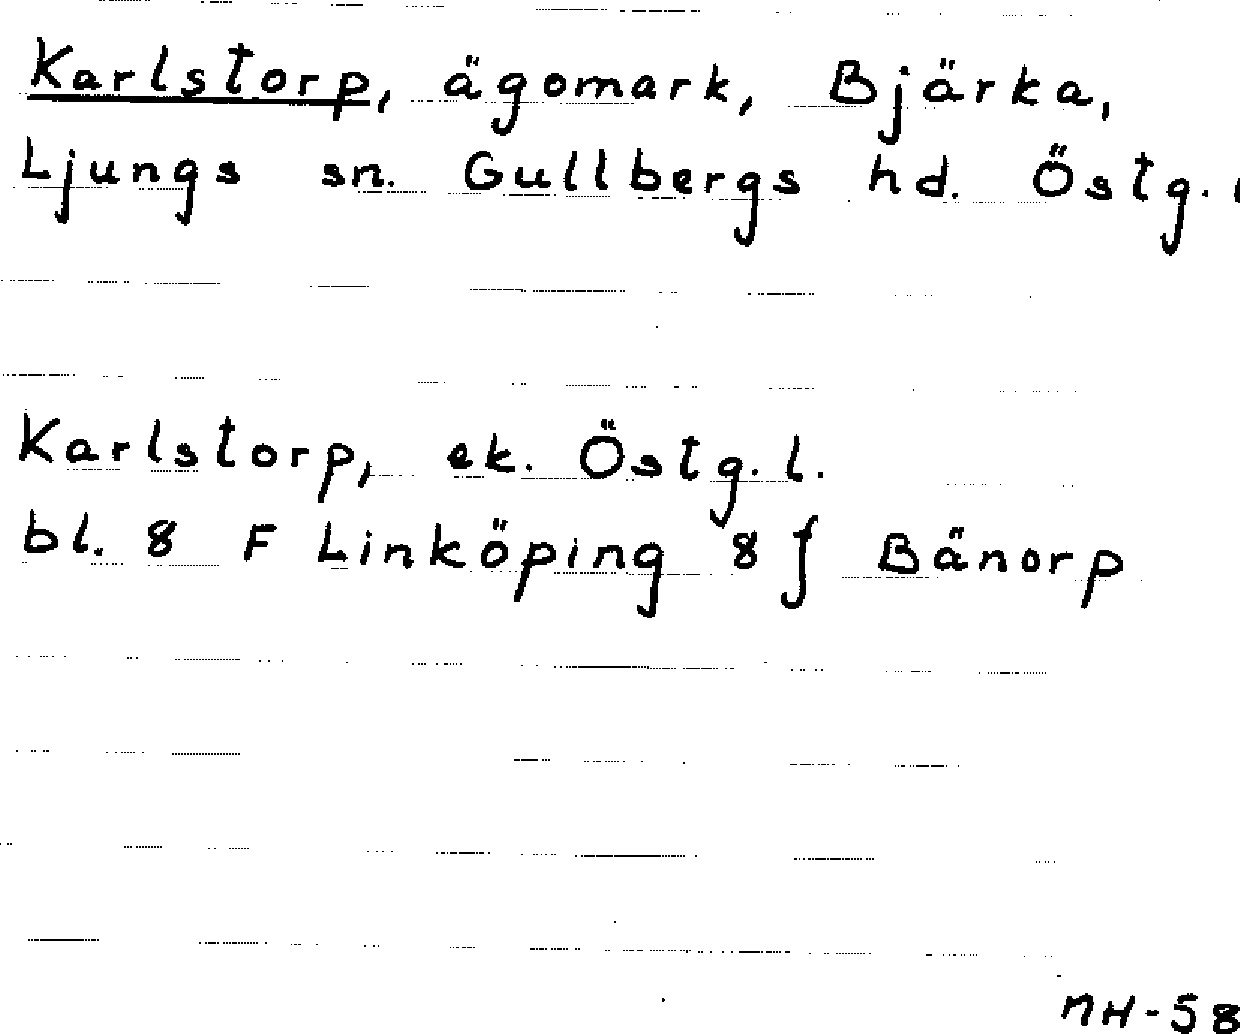 Karlstorp, ägomark, Bjärka,
Ljungs sn. Gullbergs hd. Östg. l
Karlstorp, ek. Östg. l.
bl. 8 F Linköping 8 f Bänorp
MH-58